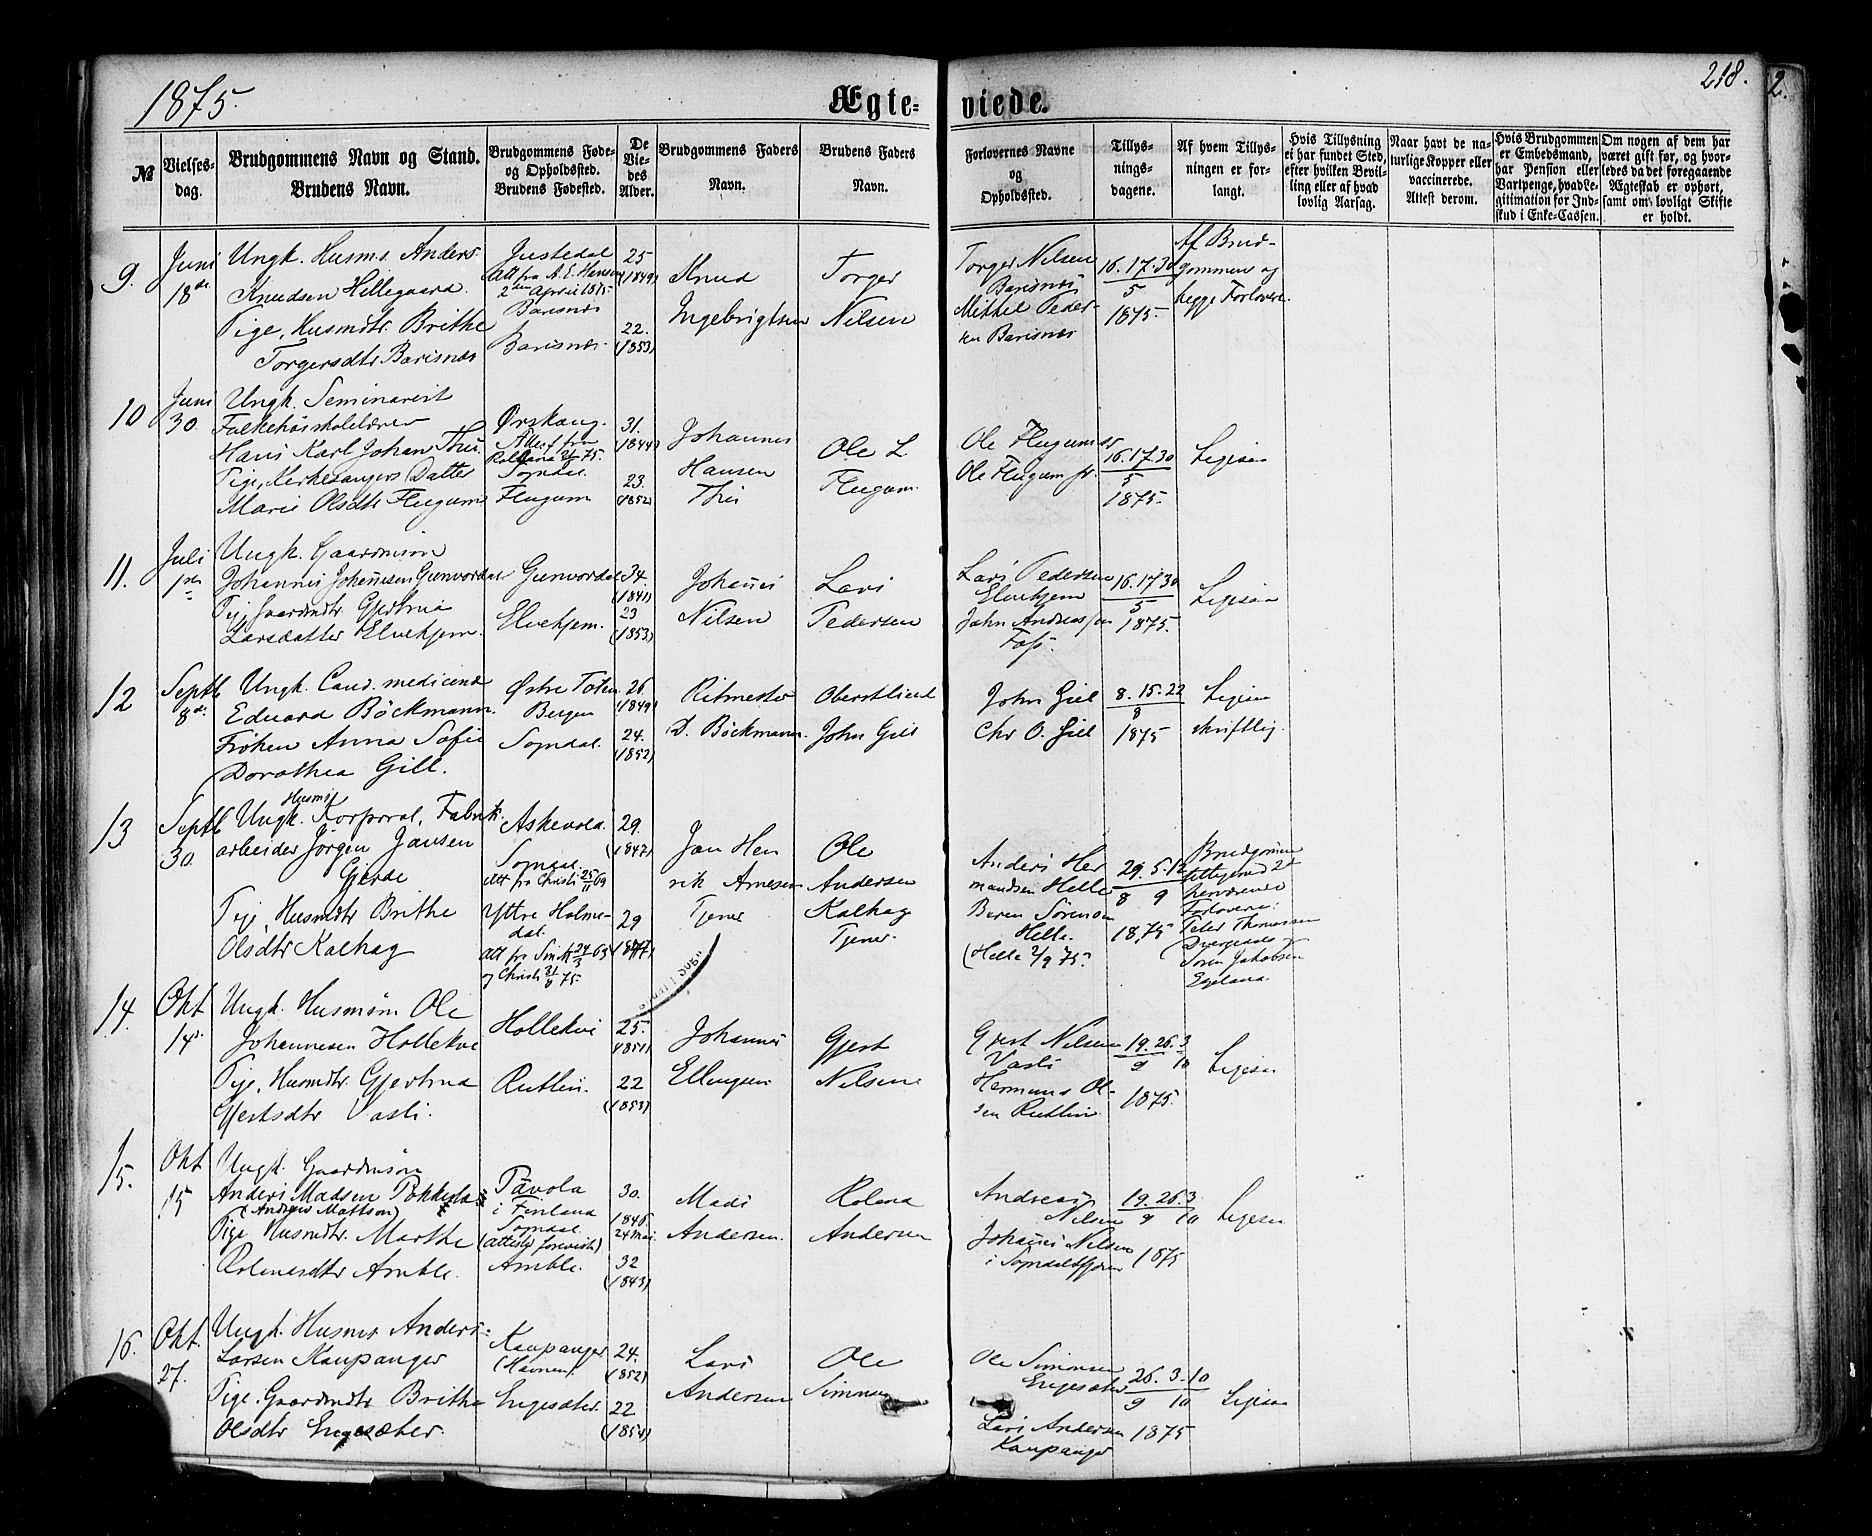 1875.
Ægte-
viede.
218.
2.
№
Vielses-
dag.
Brudgommens Navn og Stand.
Brudens Navn.
Brudgommens Føde-
og Opholdssted.
Brudens Fødested.
De
Vie-
des
Alder.
Brudgommens Faders
Navn.
Brudens Faders
Navn.
Forlovernes Navne
og
Opholdssted.
Tillys-
nings-
dagene.
Af hvem Tillys-
ningen er for-
langt.
Hvis Tillysning
ei har fundet Sted,
efter hvilken Bevil-
ling eller af hvad
lovlig Aarsag.
Naar havt de na-
turlige Kopper eller
vaccinerede.
Attest derom.
Hvis Brudgommen
er Embedsmand,
har Pension eller
Vartpenge, hvad Le-
gitimation for Ind-
skud i Enke-Cassen.
Om nogen af dem har
været gift før, og hvor-
ledes da det foregaaende
Ægteskab er ophørt,
samt om lovligt Skifte
er holdt.
9.
Juni
18de
Ungk. Husms. Anders
Knudsen Hillegaard.
Pige, Husmdtr. Brithe
Torgersdtr Barisnæs
Justedal
Att fra A. E. Hansen
2den April 1875
Barisnæs
Barisnæs
25
(1849)
22.
(1853)
Knud
Ingebrigtsen
Torger
Nilsen
Torger Nilsen
Barisnæs
Mikkel Peder-
sen Barisnæs
16.17.30
5
1875.
Af Brud-
gommen og
begge Forlovere.
10
Juni
30.
Ungk. Seminarist
Folkehøiskolelærer
Hans Karl Johan Thiis
Pige, Kirkesangers Datter
Marie Olsdtr Flugum
Ørskoug.
Attest fra
Sogndal.
Flugum
31.
(1844)
23.
(1852)
Johannes
Hansen
Thiis
Ole L
Flugum.
Ole Flugum sr
Ole Flugum jr.
16.17.30
5
1875.
Ligesaa
11.
Juli
1ste
Ungk. Gaardmsøn
Johannes Johannesen Gunvordal
Pige, Gaardmdtr Gjertrud
Larsdatter Elvekjem.
Gunvordal
Elvekjem.
34.
(1841)
23
(1853)
Johannes
Nilsen
Lars
Pedersen
Lars Pedersen
Elvekjem
John Andreassen
Foss.
16.17.30
5
1875.
Ligesaa
12
Septb
8de
Ungk. Cand. medicinæ
Eduard Böckmann.
Frøken Anna Sofie
Dorothea Gill.
Østre Toten
Bergen
Sogndal.
26.
(1849)
24.
(1852)
Ritmester
D. Böckmann.
Oberstlieut
John Gill
John Giel
Chr O. Giel
8.15.22
8
1875
Ligesaa
skriftlig.
13
Septb
30.
Husms
Ungk. Korporal, Fabrik-
arbeider Jørgen Jansen
Gjerde
Pige, Husmdtr Brithe
Olsdtr Kalhag
Askevold.
Sogndal
Att fra Christi 25/11 69
Yttre Holme-
dal.
og Christi 31/8 75.
29.
(1847)
29
(1847)
Jan Hen
rik Arnesen
Tjener
Ole
Andersen
Kalhag
Tjener.
Anders Her
mandsen Helle
Beren Sørensen
Helle.
(Helle 2/9 75.
29. 5. 12
8 9
1875
Brudgommen
tilligemed 2de
herværende
Forlovere:
Peder Thomassen
Søren Jakobsen
14.
Okt
14de
Ungk. Husmsøn Ole
Johannesen Hollekve
Pige, Husmdtr. Gjertrud
Gjestsdtr Vasli.
Hollekve
Rutlin.
25.
(1851)
22
(1853)
Johannes
Ellingsen
Gjest
Nilsen
Gjest Nilsen
Vasli
Hermund Ol-
sen Rutlin.
19.26.3
9 10
1875.
Ligesaa
15.
Okt
15
Ungk. Gaardmsøn
Anders Madsen Pokkela
(Anders Mattson)
Pige Husmdtr. Marthe
Rolensdtr Amble.
Pavola
i Finland
Sogndal
(Attester foreviste)
Amble.
30.
1846.
24 Mai.
32
(1843)
Mads
Andersen.
Rolend
Andersen
Andreas
Nilsen
Johannes Nilsen
i Sogndalsfjæren
19.26.3
9 10
1875
Ligesaa
16.
Okt.
27.
Ungk. Husms Anders
Larsen Kaupanger
Pige. Gaardmdtr Brithe
Olsdtr Engesæter.
Kaupanger
(Havnen).
Engesæter.
24.
(1852)
22
(1854)
Lars
Andersen
Ole
Simonsen
Ole Simonsen
Engesæter
Lars Andersen
Kaupanger
26. 3. 10
9 10
1875
Ligesaa